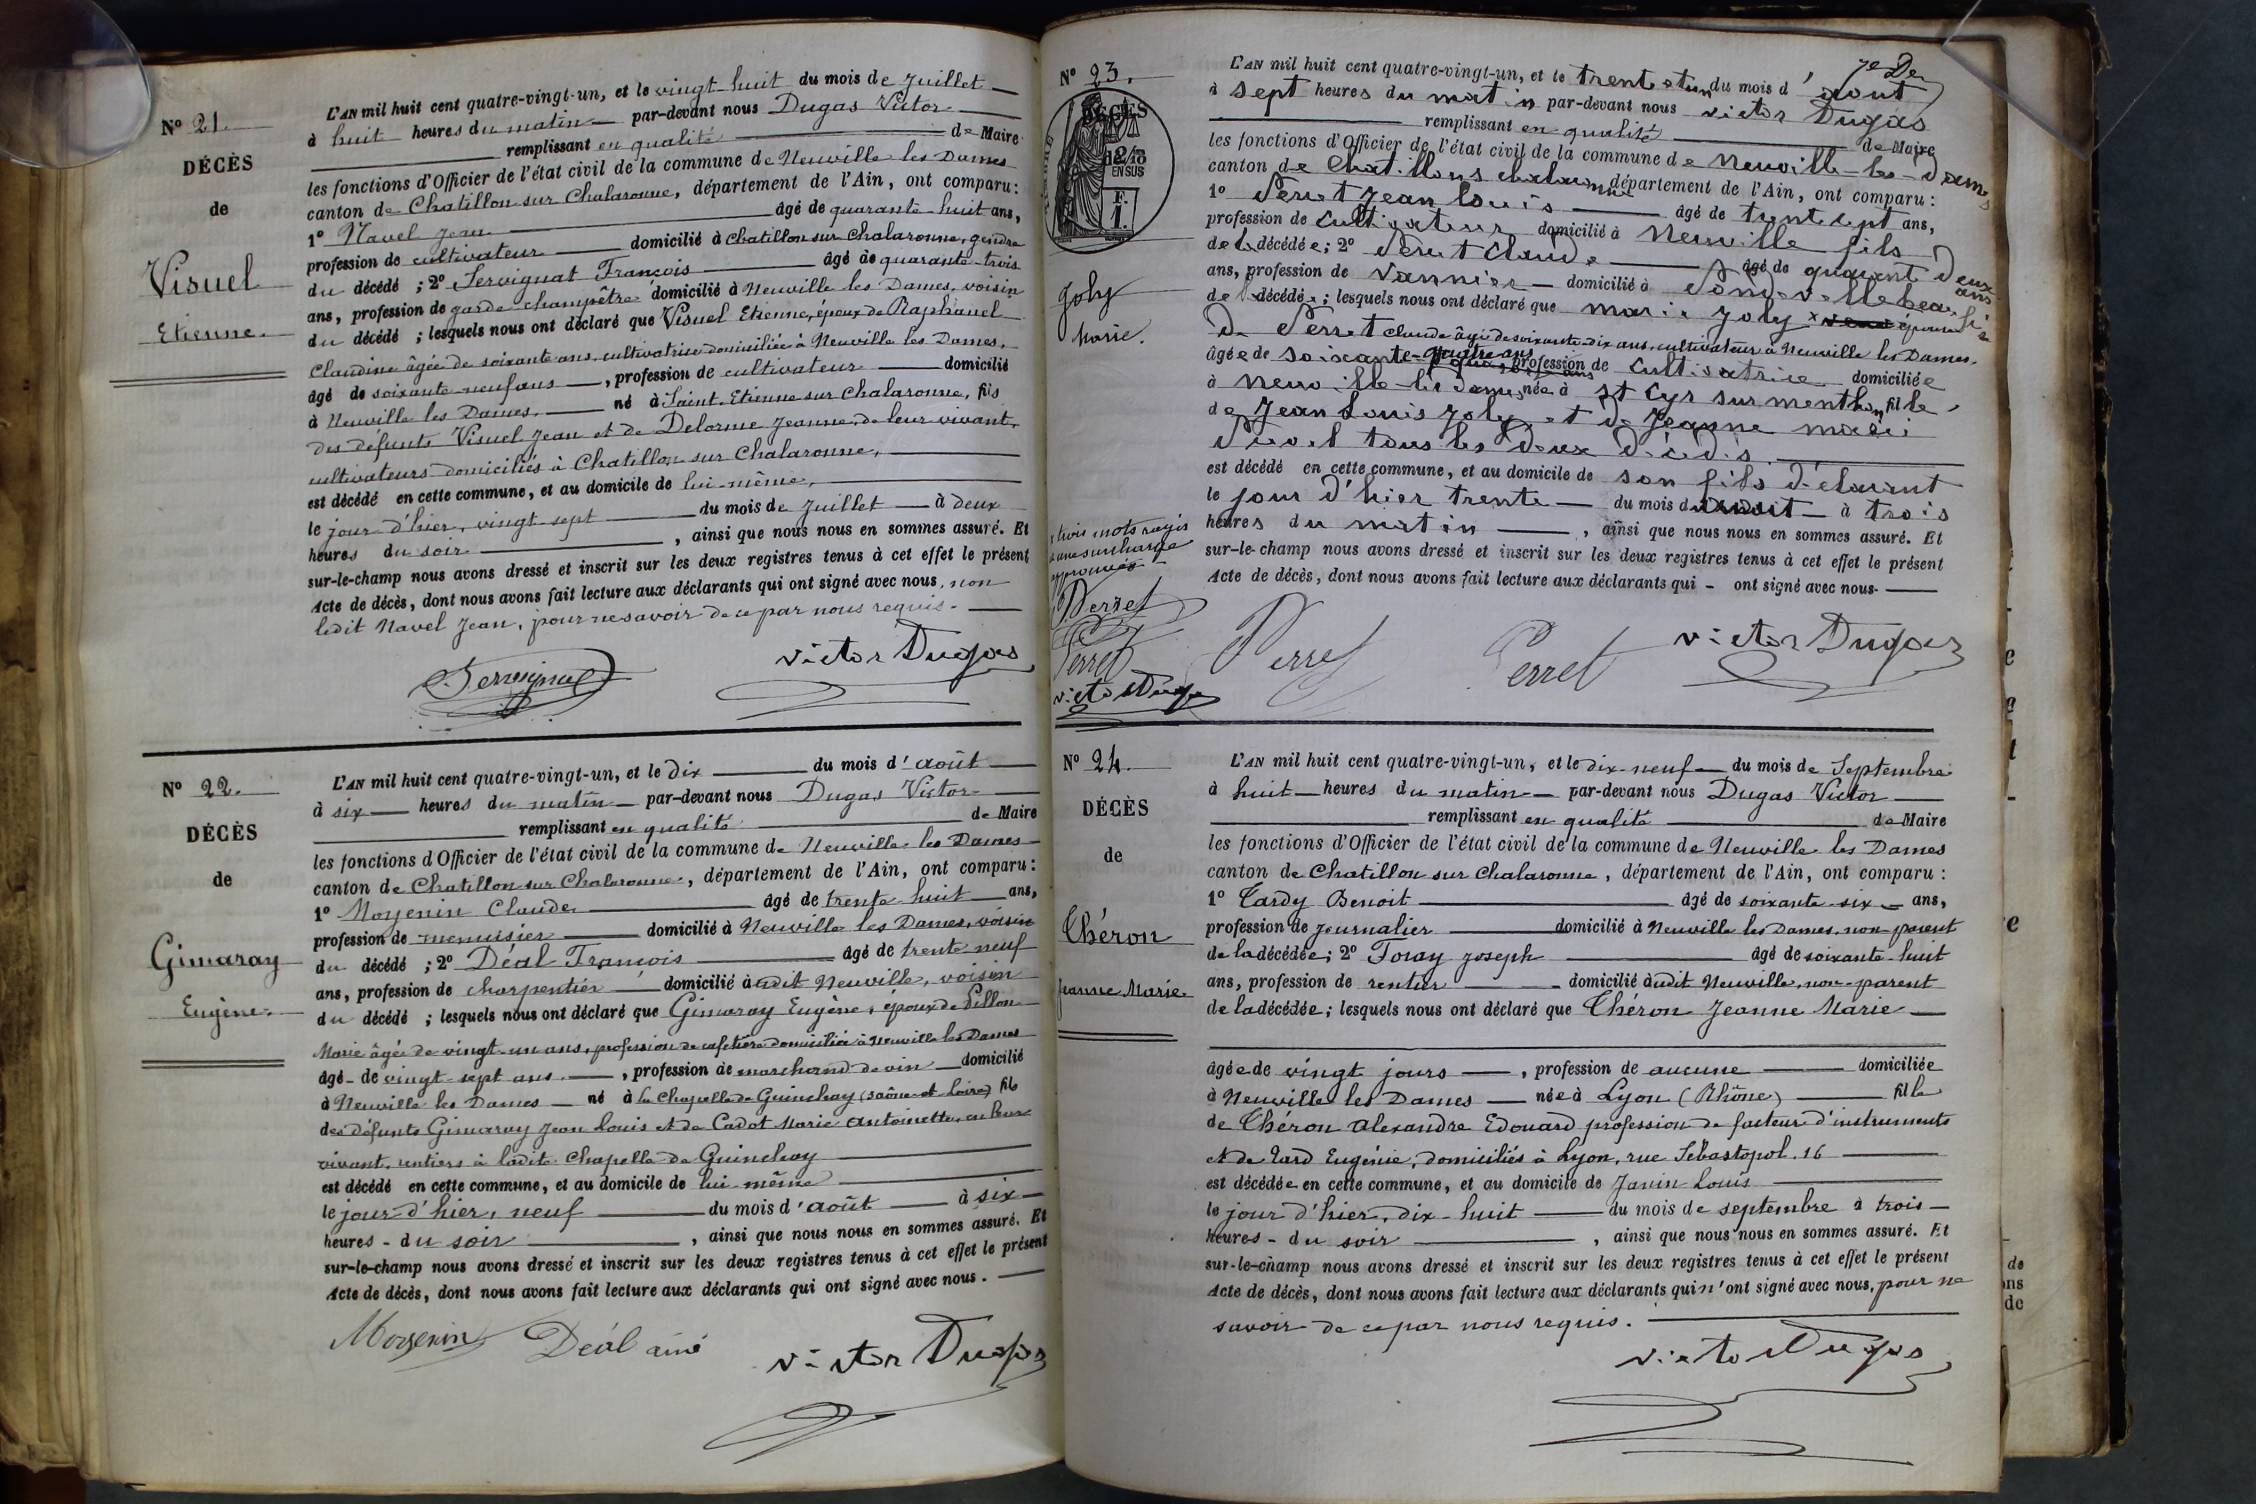 N° 21.
DÉCÈS
de
Visuel
Etienne.
L'AN mil huit cent quatre-vingt-un, et le vingt-huit du mois de Juillet
à huit heures du matin par-devant nous Dugas Victor
remplissant en qualité de Maire
les fonctions d'Officier de l'état civil de la commune de Neuville les Dames
canton de Chatillon sur Chalaronne, département de l'Ain, ont comparu :
1° Navel Jean âgé de quarante-huit ans,
profession de cultivateur domicilié à Chatillon sur Chalaronne, gendre
du décédé ; 2° Servignat François âgé de quarante-trois
ans, profession de garde champêtre domicilié à Neuville les Dames, voisin
du décédé ; lesquels nous ont déclaré que Visuel Etienne, époux de Raphanel
Claudine âgée de soixante ans, cultivatrice domiciliée à Neuville les Dames,
âgé de soixante-neuf ans, profession de cultivateur domicilié
à Neuville les Dames, né à Saint-Etienne sur Chalaronne, fils
des défunts Visuel Jean et de Delorme Jeanne, de leur vivant,
cultivateurs domiciliés à Chatillon sur Chalaronne,
est décédé en cette commune, et au domicile de lui-même,
le jour d'hier, vingt-sept du mois de Juillet à deux
heures du soir, ainsi que nous nous en sommes assuré. Et
sur-le-champ nous avons dressé et inscrit sur les deux registres tenus à cet effet le présent
Acte de décès, dont nous avons fait lecture aux déclarants qui ont signé avec nous, non
ledit Navel Jean, pour ne savoir de ce par nous requis.
Servignat Victor Dugas
N° 22.
DÉCÈS
de
Gimaray
Eugène.
L'AN mil huit cent quatre-vingt-un, et le dix du mois d'août
à six heures du matin par-devant nous Dugas Victor
remplissant en qualité de Maire
les fonctions d'Officier de l'état civil de la commune de Neuville les Dames
canton de Chatillon sur Chalaronne, département de l'Ain, ont comparu :
1° Moyenin Claude âgé de trente huit ans,
profession de menuisier domicilié à Neuville les Dames, voisin
du décédé ; 2° Déal François âgé de trente neuf
ans, profession de charpentier domicilié à udit Neuville, voisin
du décédé ; lesquels nous ont déclaré que Gimaray Eugène, époux de Pillon
Marie âgée de vingt-un ans, profession de cafetière domiciliée à Neuville les Dames
âgé de vingt-sept ans, profession de marchand de vin domicilié
à Neuville les Dames né à la Chapelle de Guinchay (Saône et Loire) fils
des défunts Gimaray Jean Louis et de Cadot Marie Antoinette, en leur
vivant, rentiers à ladite Chapelle de Guinchay
est décédé en cette commune, et au domicile de lui-même
le jour d'hier, neuf du mois d'août à six
heures du soir, ainsi que nous nous en sommes assuré. Et
sur-le-champ nous avons dressé et inscrit sur les deux registres tenus à cet effet le présent
Acte de décès, dont nous avons fait lecture aux déclarants qui ont signé avec nous.
Moyenin Déal ainé Victor Dugas
N° 23.
DÉCÈS
2/10
EN SUS
F.
1.
Joly
Marie.
x trois mots rayés
& une surcharge
approuvés
Perret
Perret
Victor Dugas
7e Der
L'AN mil huit cent quatre-vingt-un, et le trente et un du mois d'aout
à sept heures du matin par-devant nous victor Dugas
remplissant en qualité de Maire
les fonctions d'Officier de l'état civil de la commune de Neuville-les-Dames
canton de Chatillons chalaronne département de l'Ain, ont comparu :
1° Perret Jean louis âgé de trente sept ans,
profession de cultivateur domicilié à Neuville fils
de la décédée ; 2° Perret Claude âgé de quarante deux
ans
ans, profession de vannier domicilié à Sandevelle beau fils
de la décédée ; lesquels nous ont déclaré que marie Joly x veuve épouse
de Perret Claude âgé de soixante-dix ans, cultivateur à Neuville les Dames.
âgée de soixante-quatre ans profession de cultivatrice domiciliée
à neuville-les dames, née à St Cyr sur menthon, fille
de Jean Louis Joly et de Jeanne marie
tous les deux décédés
est décédé en cette commune, et au domicile de son fils déclarant
le jour d'hier trente du mois d'aout à trois
heures du matin, ainsi que nous nous en sommes assuré. Et
sur-le-champ nous avons dressé et inscrit sur les deux registres tenus à cet effet le présent
Acte de décès, dont nous avons fait lecture aux déclarants qui ont signé avec nous.
Perret Perret Victor Dugas
N° 24.
DÉCÈS
de
Théron
Jeanne Marie.
L'AN mil huit cent quatre-vingt-un, et le dix-neuf du mois de Septembre
à huit heures du matin par-devant nous Dugas Victor
remplissant en qualité de Maire
les fonctions d'Officier de l'état civil de la commune de Neuville les Dames
canton de Chatillon sur Chalaronne, département de l'Ain, ont comparu :
1° Tardy Benoit âgé de soixante-six ans,
profession de journalier domicilié à Neuville les Dames, non-parent
de la décédée ; 2° Foray Joseph âgé de soixante-huit
ans, profession de rentier domicilié à udit Neuville, non-parent
de la décédée ; lesquels nous ont déclaré que Théron Jeanne Marie
âgée de vingt jours, profession de aucune domiciliée
à Neuville les Dames née à Lyon (Rhône) fille
de Théron Alexandre Edouard profession de facteur d'instruments
et de Tard Eugénie, domiciliés à Lyon, rue Sébastopol, 16
est décédée en cette commune, et au domicile de Janin Louis
le jour d'hier, dix-huit du mois de septembre à trois
heures du soir, ainsi que nous nous en sommes assuré. Et
sur-le-champ nous avons dressé et inscrit sur les deux registres tenus à cet effet le présent
Acte de décès, dont nous avons fait lecture aux déclarants qui n'ont signé avec nous, pour ne
savoir de ce par nous requis.
Victor Dugas